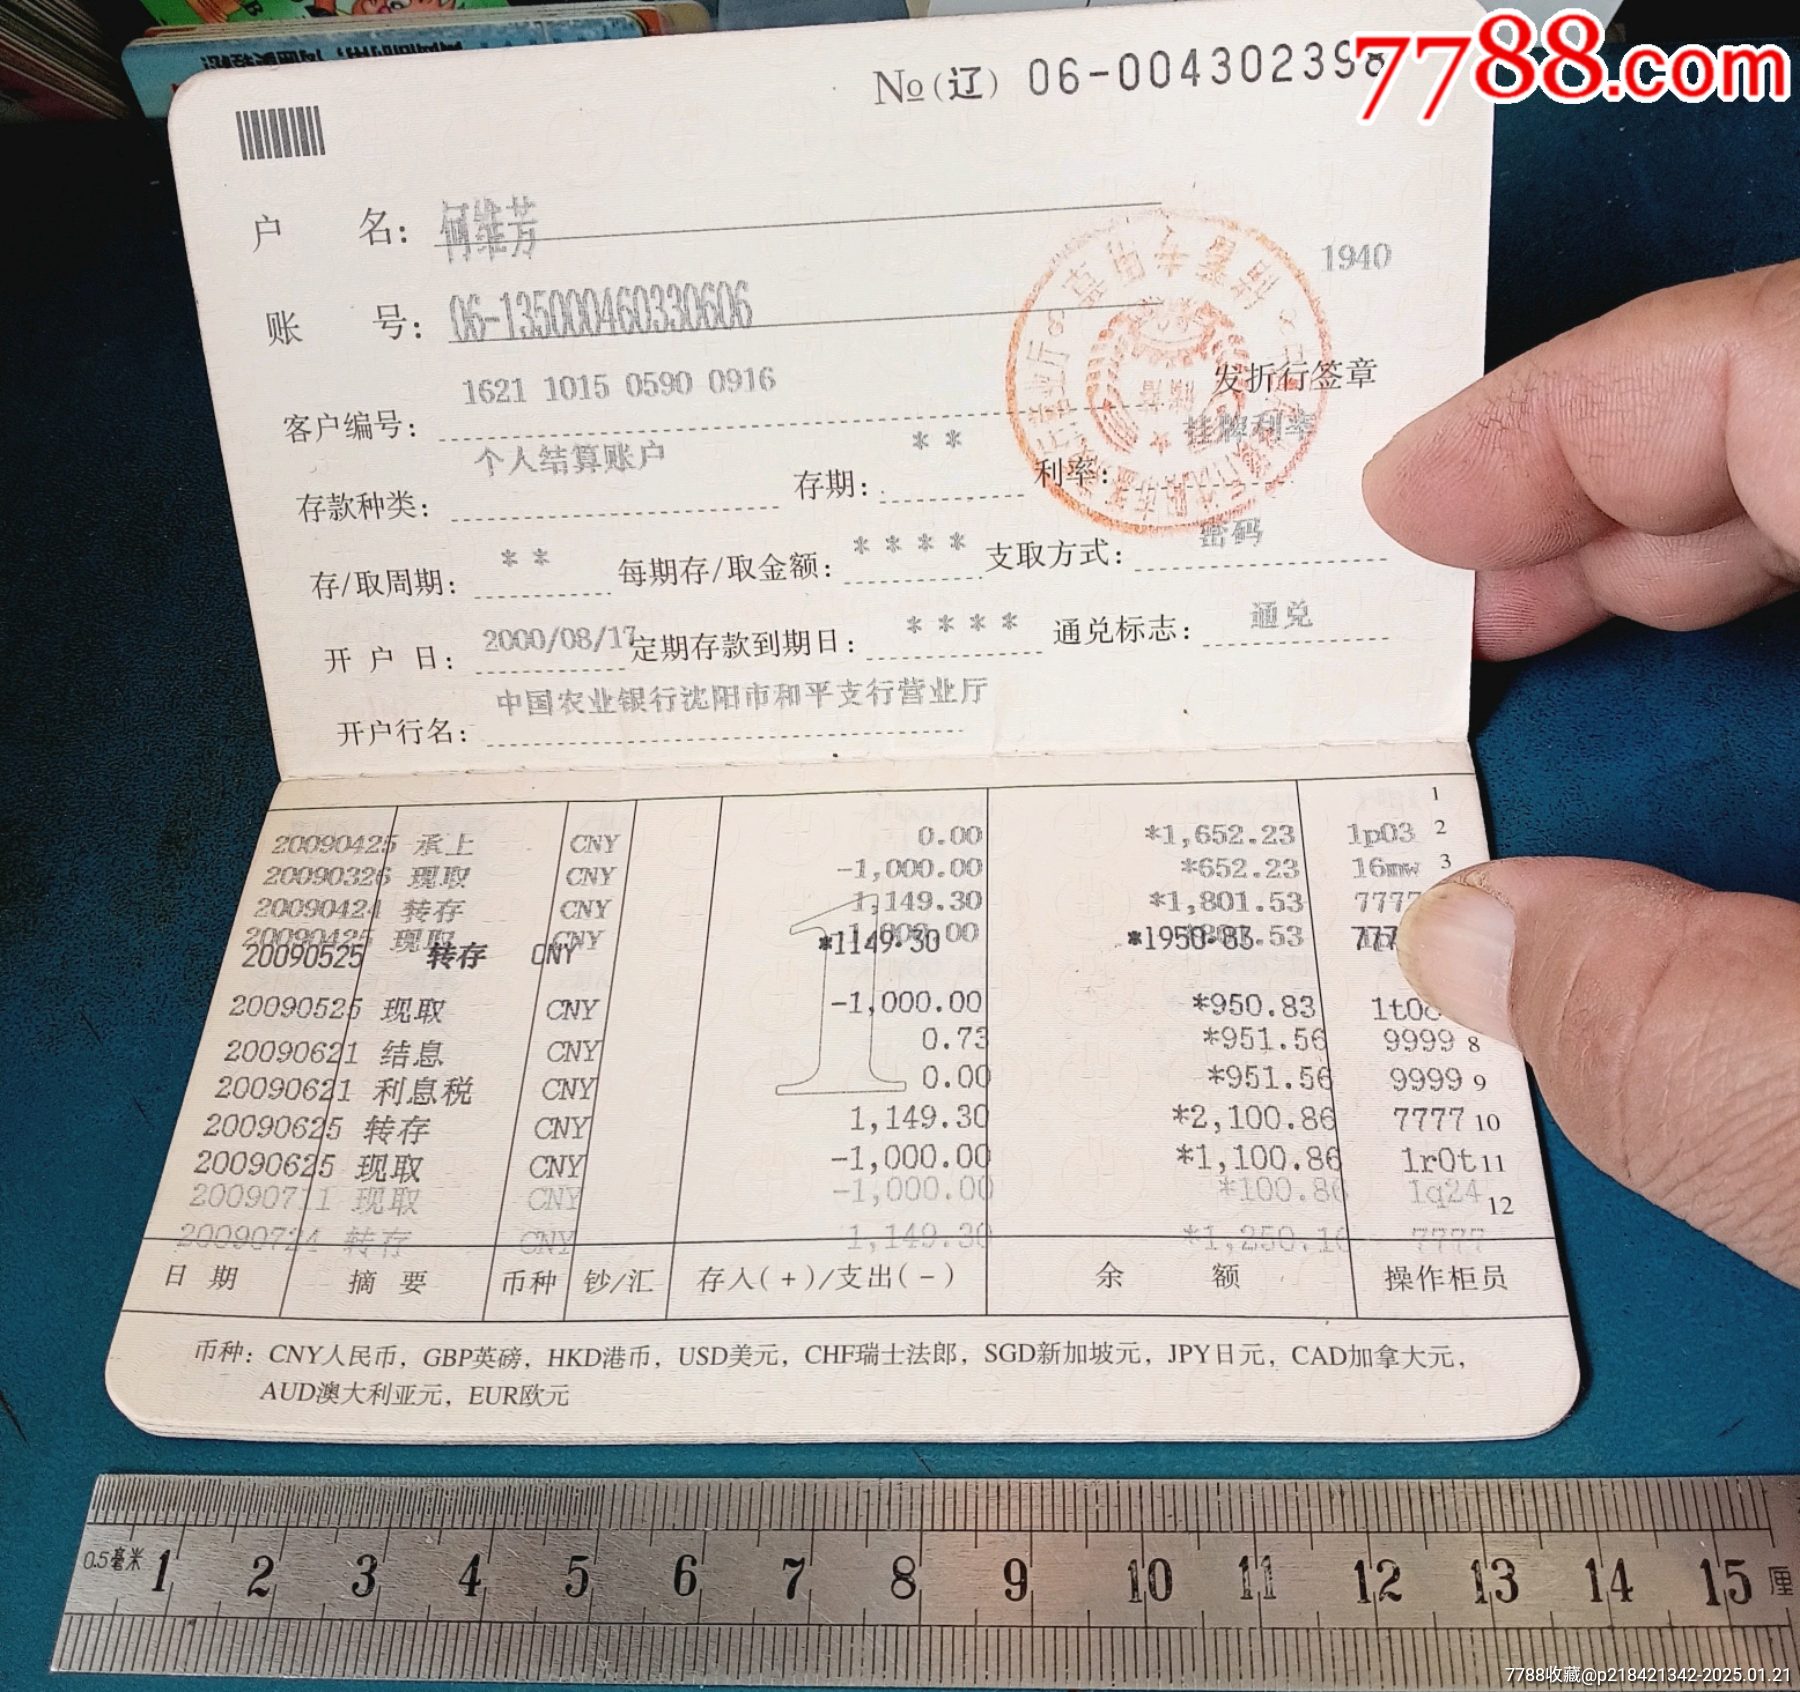 7788.com
№(辽) 06-004302398
户 名: 何维芳
1940
账 号: 06-135000460330606
发折行签章
客户编号: 1621 1015 0590 0916
存款种类: 个人结算账户 存期: ** 利率: 挂牌利率
存/取周期: ** 每期存/取金额: **** 支取方式: 密码
开 户 日: 2000/08/17 定期存款到期日: **** 通兑标志: 通兑
开户行名: 中国农业银行沈阳市和平支行营业厅
1
20090425 承上 CNY 0.00 *1,652.23 1p03 2
20090326 现取 CNY -1,000.00 *652.23 16mw 3
20090424 转存 CNY 1,149.30 *1,801.53 7777
20090425 现取 CNY -1,000.00
20090525 转存 CNY *1149.30 *1950.83 777
20090525 现取 CNY -1,000.00 *950.83 1t08
20090621 结息 CNY 0.73 *951.56 9999 8
20090621 利息税 CNY 0.00 *951.56 9999 9
20090625 转存 CNY 1,149.30 *2,100.86 7777 10
20090625 现取 CNY -1,000.00 *1,100.86 1r0t 11
20090711 现取 CNY -1,000.00 *100.86 1q24 12
20090724 转存 CNY 1,149.30 *1,250.16 7777
日 期 摘 要 币种 钞/汇 存入(+)/支出(-) 余 额 操作柜员
币种: CNY人民币, GBP英磅, HKD港币, USD美元, CHF瑞士法郎, SGD新加坡元, JPY日元, CAD加拿大元,
AUD澳大利亚元, EUR欧元
0.5毫米 1 2 3 4 5 6 7 8 9 10 11 12 13 14 15 厘
7788收藏@p218421342-2025.01.21